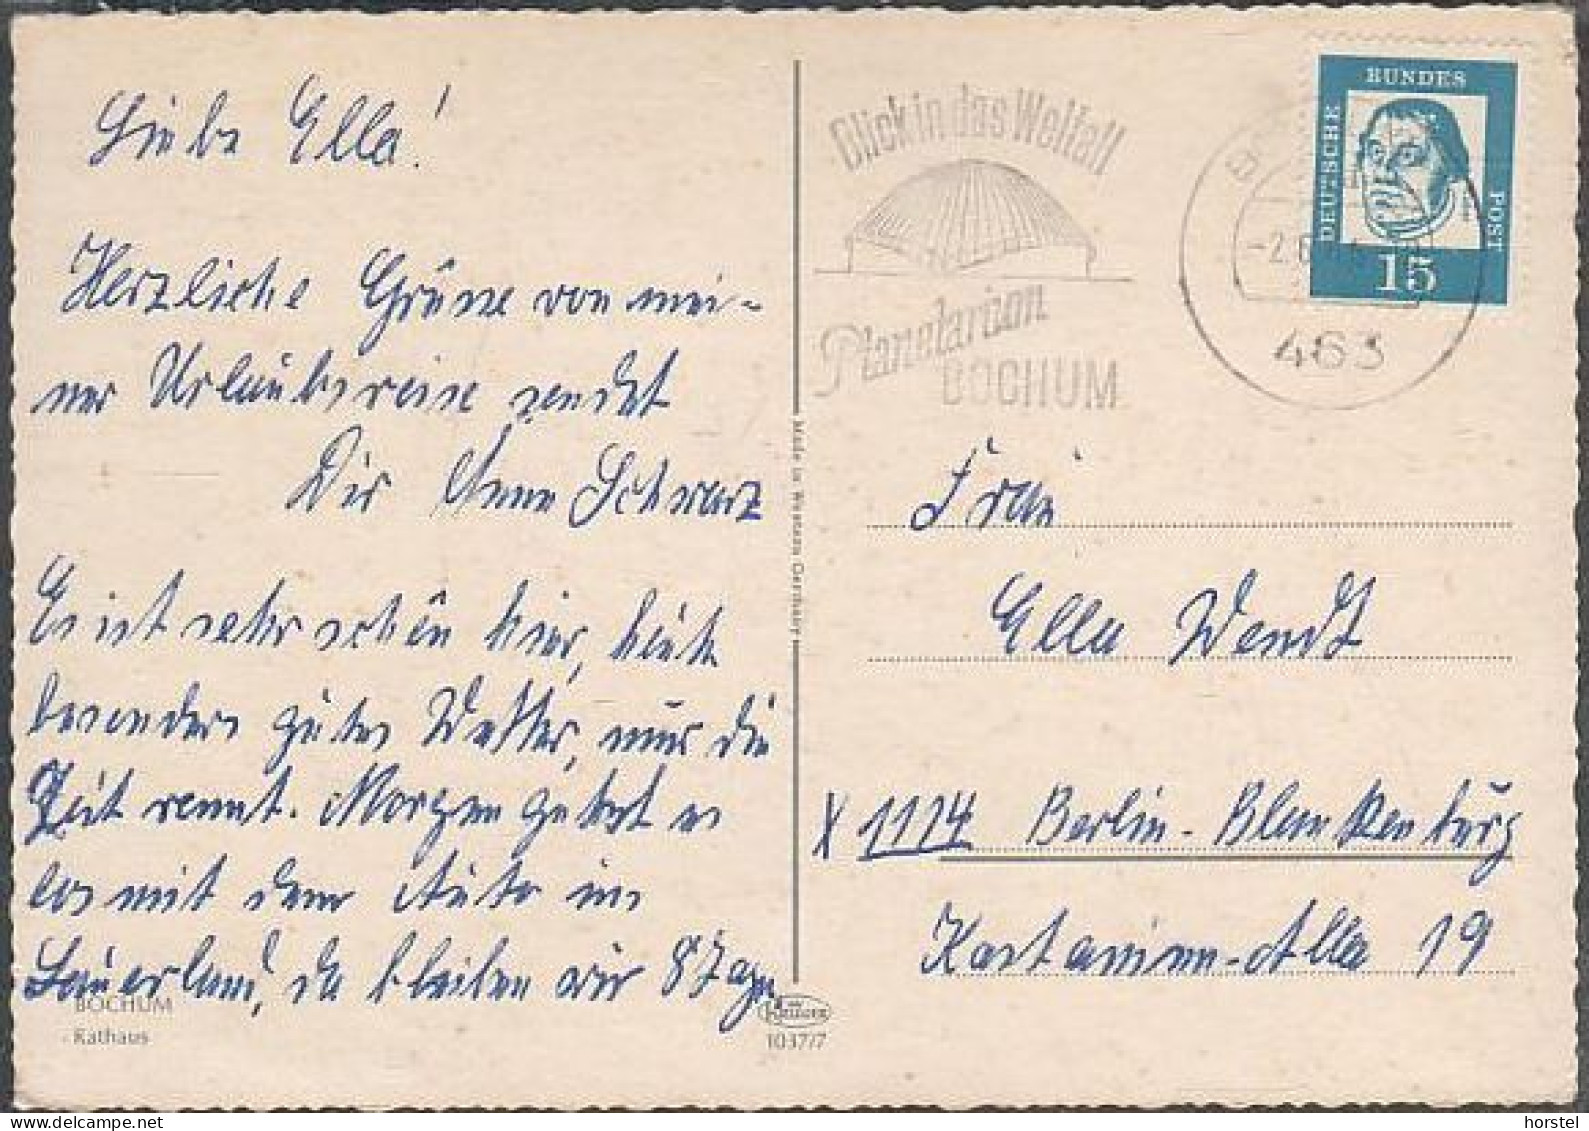 Liebe Ella!
Herzliche Grüsse von mei-
ner Urlaubsreise sendet
Dir Anne Schwarz
Es ist sehr schön hier, heute
besonders gutes Wetter, nur die
Zeit rennt. Morgen geht es
los mit dem Auto ins
Sauerland, da bleiben wir 8 Tage
BOCHUM
Rathaus
Made in Western Germany
1037/7
Blick in das Weltall
Planetarium
BOCHUM
463
DEUTSCHE
BUNDES
POST
15
Frau
Ella Wendt
X 1114 Berlin-Blankenburg
Kastanien-Allee 19
horstel